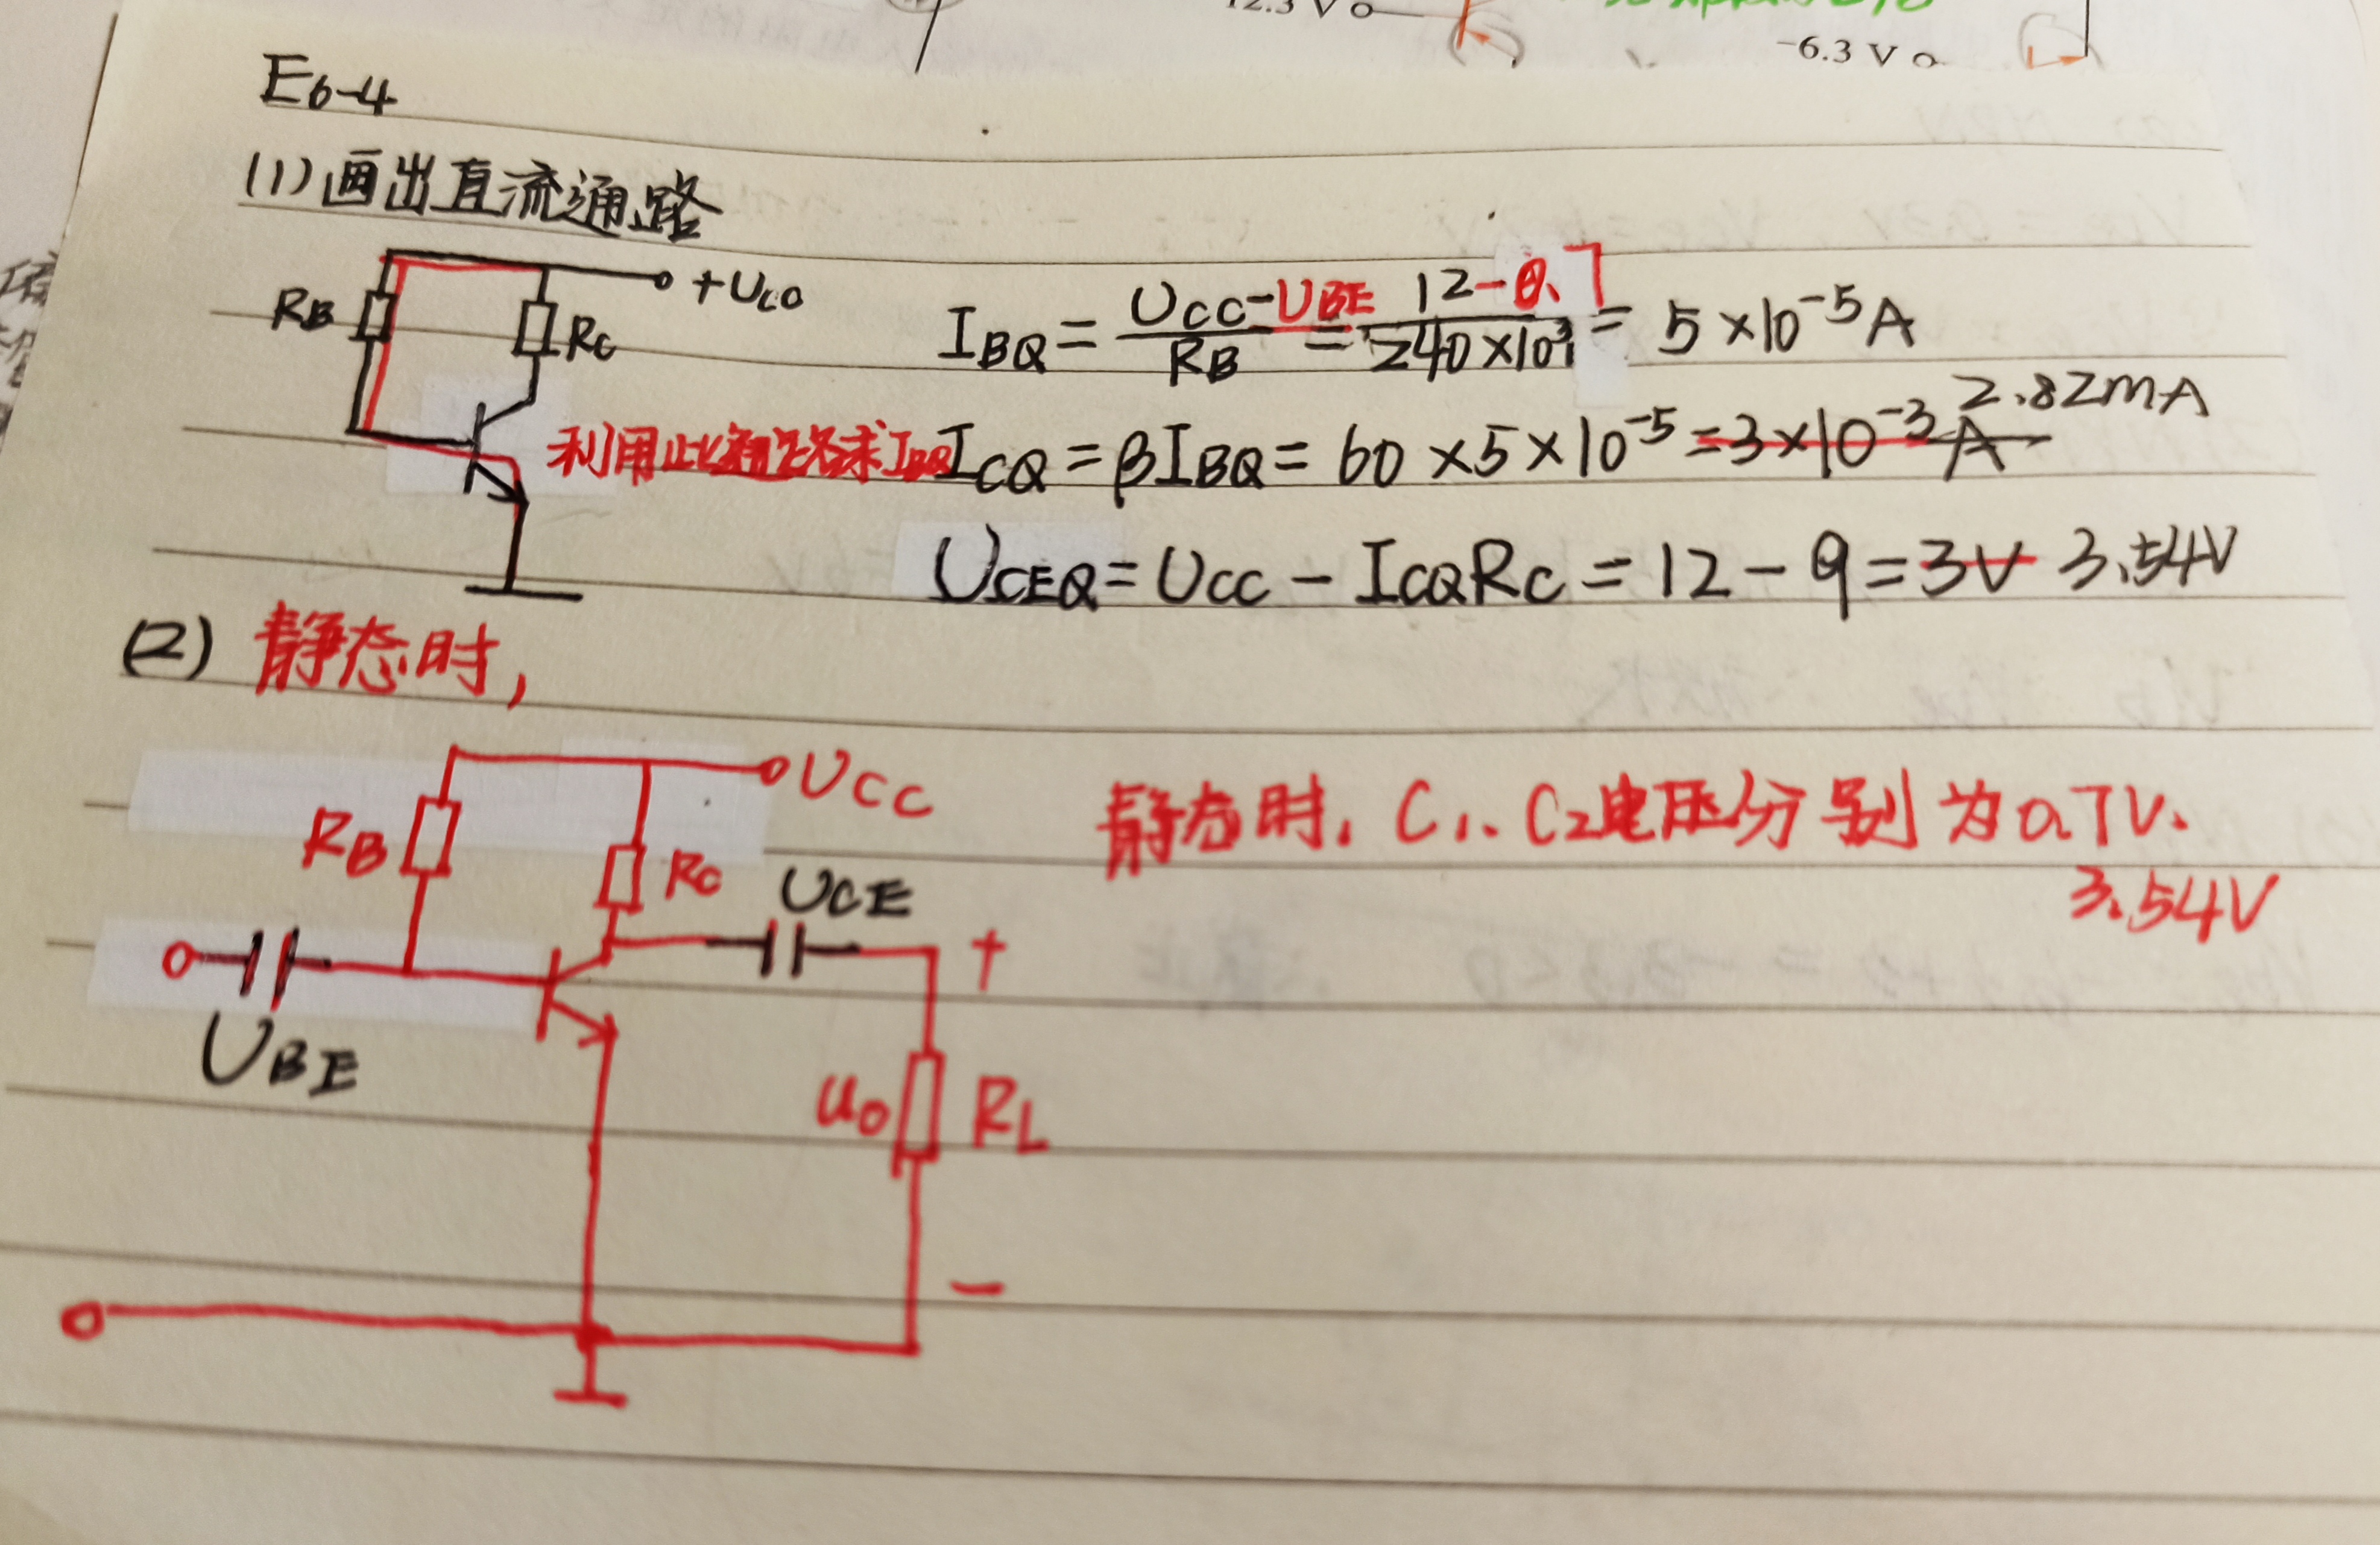 12.3 V
-6.3 V
E6-4
(1)画出直流通路
RB
RC
+UCC
IBQ = UCC-UBE / RB = 12-0.7 / 240×10³ = 5×10⁻⁵A
利用此通路求IBQ
ICQ = βIBQ = 60×5×10⁻⁵ = 3×10⁻³A 2.82mA
UCEQ = UCC - ICQRC = 12 - 9 = 3V 3.54V
(2) 静态时,
UCC
RB
RC
UCE
UBE
+
uo
RL
-
静态时, C1、C2电压分别为0.7V、
3.54V